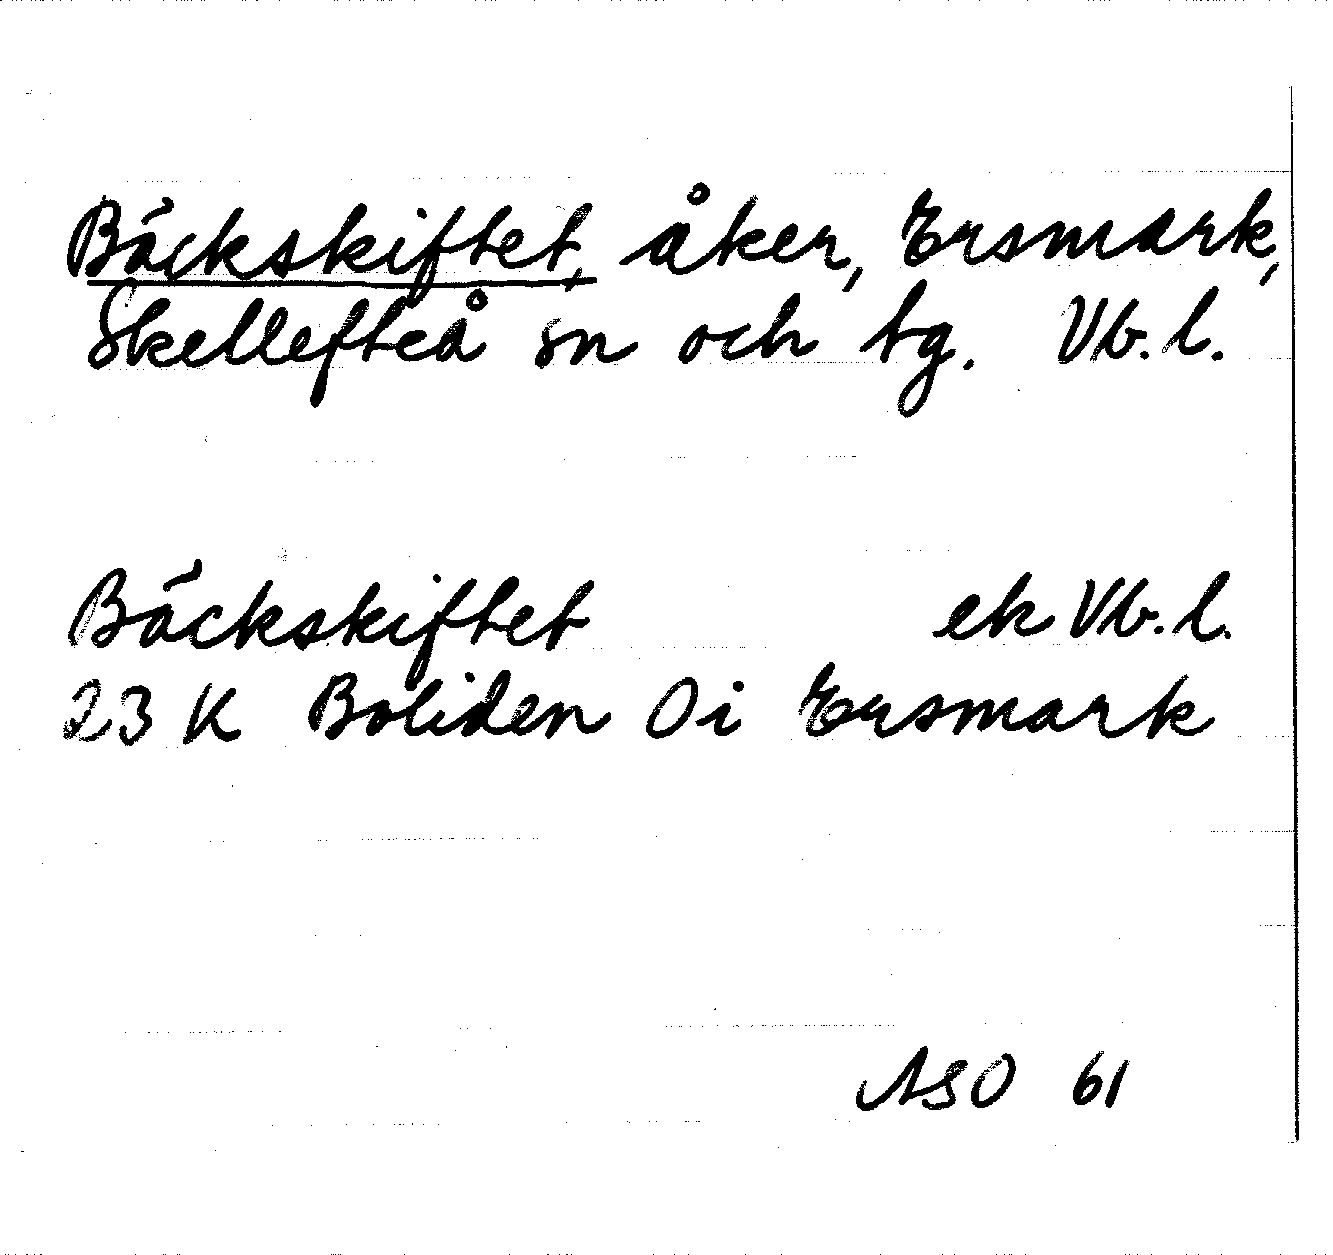 Bäckskiftet, åker, Ersmark,
Skellefteå sn och tg. Vb. l.
Bäckskiftet ek Vb. l.
23 K Boliden Oi Ersmark
ASO 61